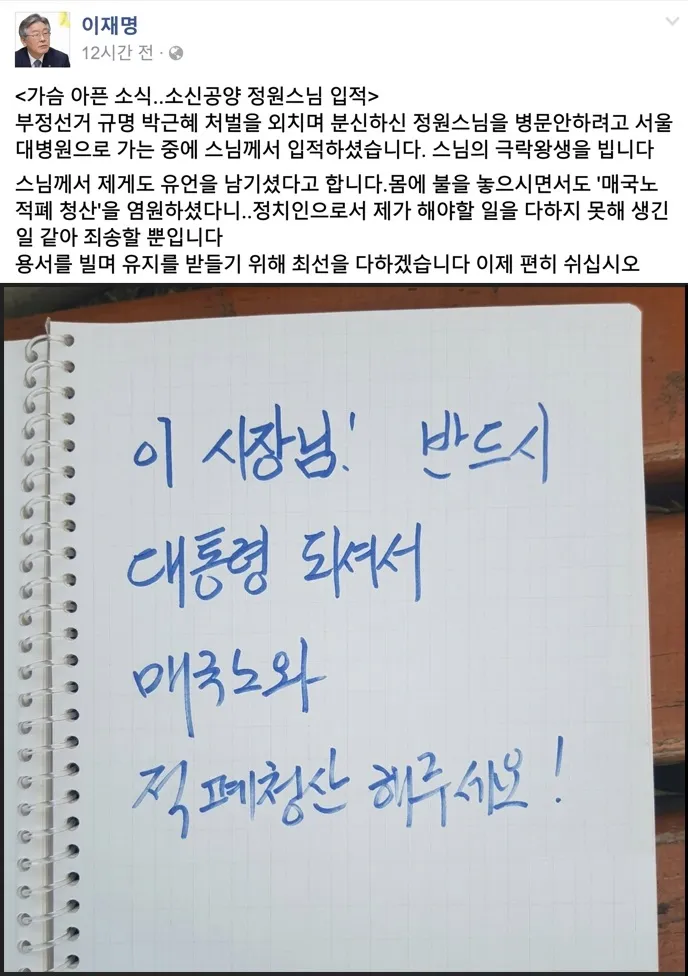 이재명
12시간 전 ·
<가슴 아픈 소식..소신공양 정원스님 입적>
부정선거 규명 박근혜 처벌을 외치며 분신하신 정원스님을 병문안하려고 서울
대병원으로 가는 중에 스님께서 입적하셨습니다. 스님의 극락왕생을 빕니다
스님께서 제게도 유언을 남기셨다고 합니다.몸에 불을 놓으시면서도 '매국노
적폐 청산'을 염원하셨다니..정치인으로서 제가 해야할 일을 다하지 못해 생긴
일 같아 죄송할 뿐입니다
용서를 빌며 유지를 받들기 위해 최선을 다하겠습니다 이제 편히 쉬십시오
이 시장님! 반드시
대통령 되셔서
매국노와
적폐청산 해주세요!